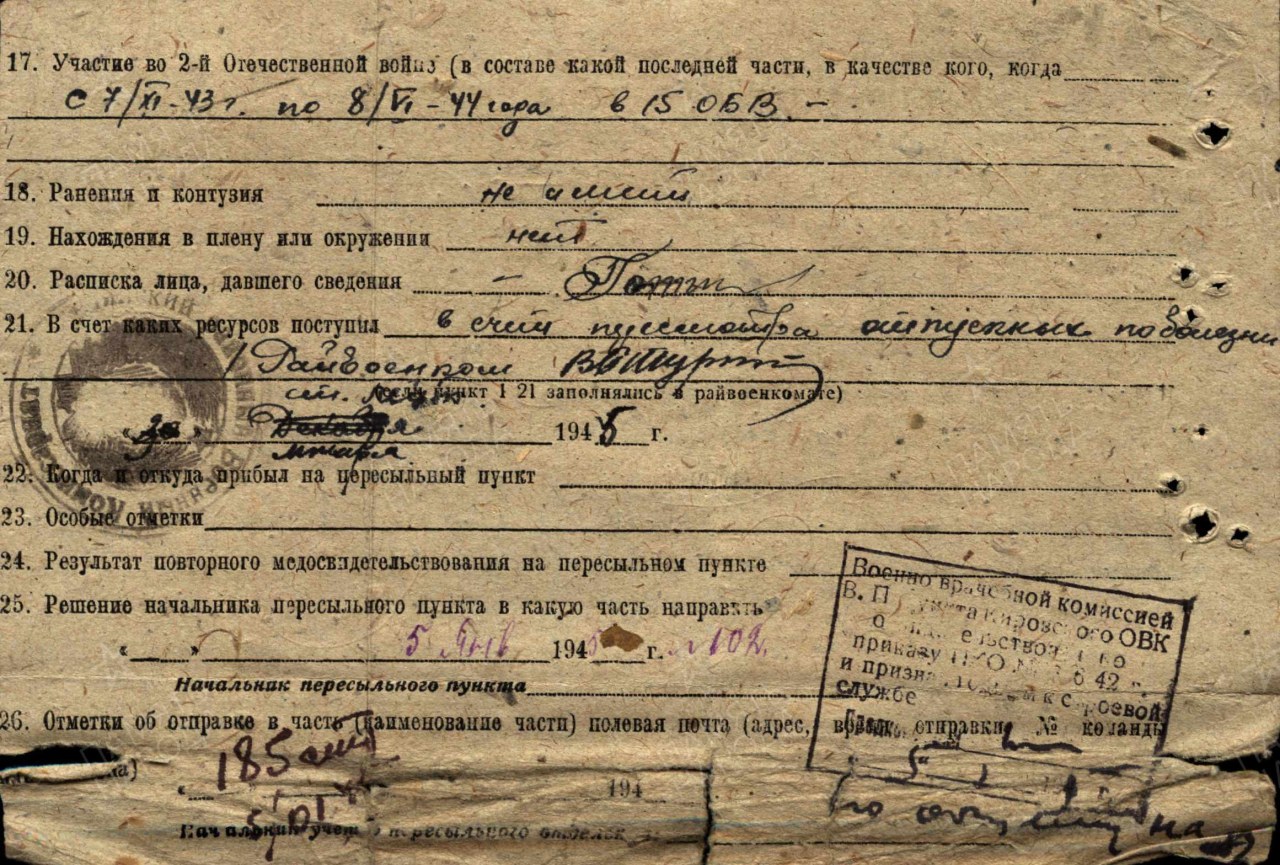 17. Участие во 2-й Отечественной войне (в составе какой последней части, в качестве кого, когда
с 7/XI-43 г. по 8/VI-44 года в 15 ОБВ. -
18. Ранения и контузия не имеит
19. Нахождения в плену или окружении нет
20. Расписка лица, давшего сведения -
21. В счет каких ресурсов поступил в счет пересмотра отпускных по болезни
/ Райвоенком
(если пункт 1 21 заполнялись в райвоенкомате)
" " Декабря 1945 г.
января
22. Когда и откуда прибыл на пересыльный пункт
23. Особые отметки
24. Результат повторного медосвидетельствования на пересыльном пункте
25. Решение начальника пересыльного пункта в какую часть направить
" " 5 Янв 1945 г. 102
Начальник пересыльного пункта
Военно врачебной комиссией
В. П. пункта Кировского ОВК
приказу НКО № 42 г.
и признан годным к строевой
службе
26. Отметки об отправке в часть (наименование части) полевая почта (адрес, время отправки, № команды
185
" 194
5/01
Начальник учет пересыльного отдела
по отпуску на